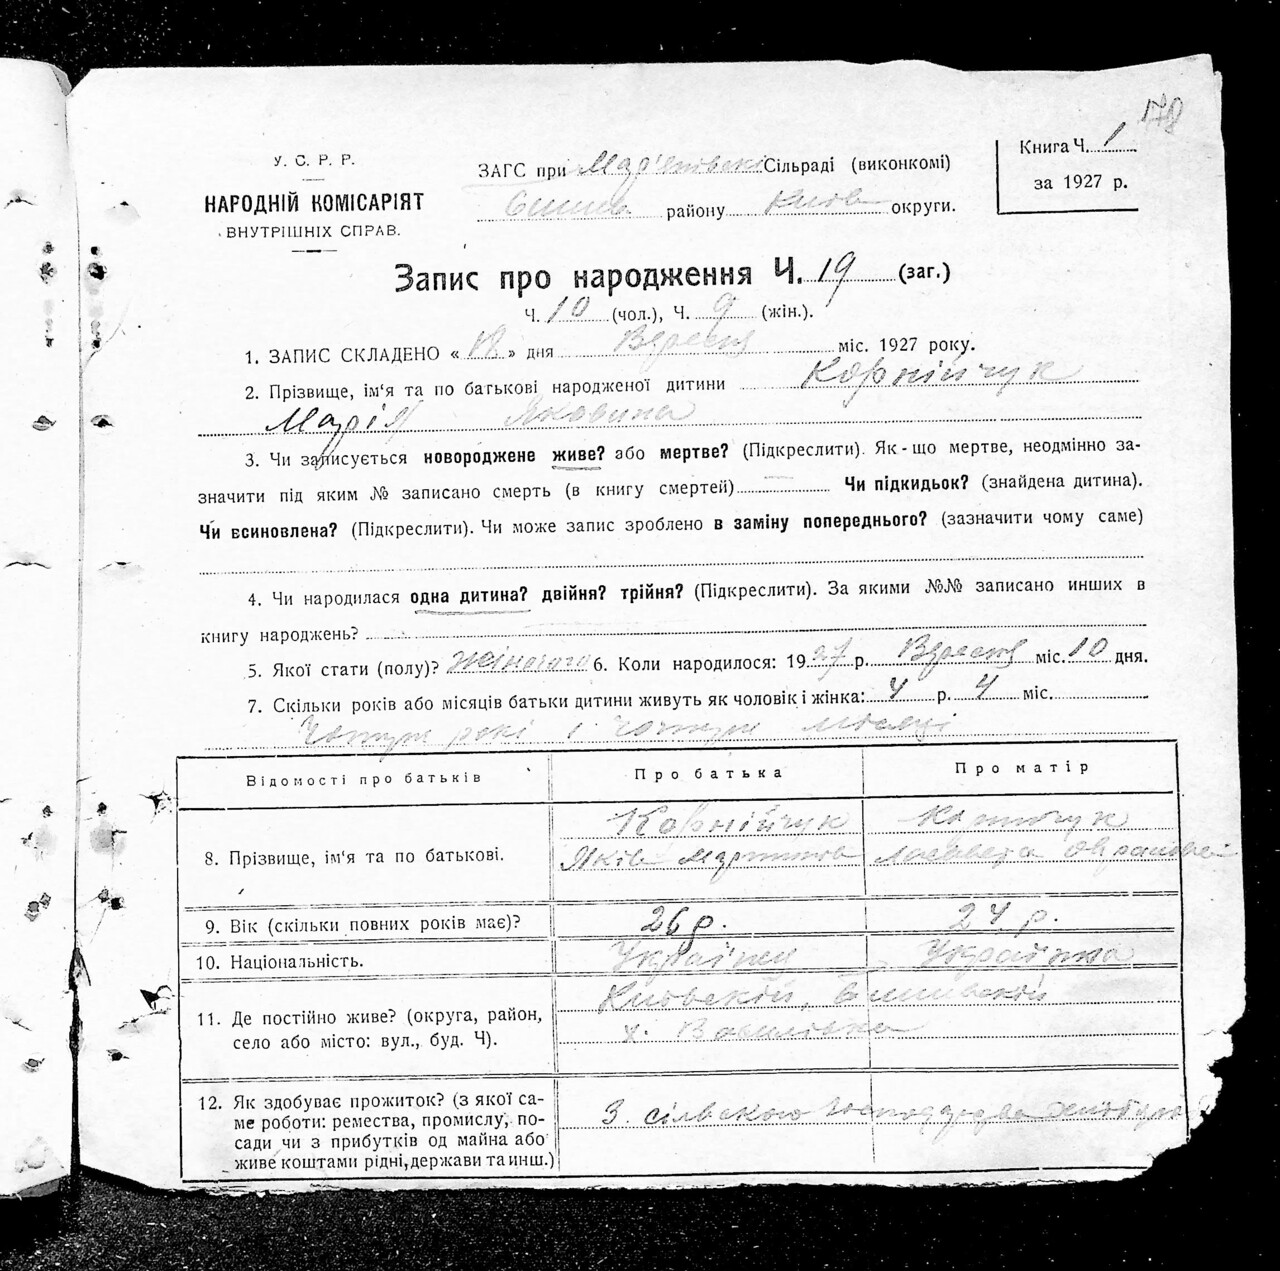 178
У. С. Р. Р.
НАРОДНІЙ КОМІСАРІЯТ
ВНУТРІШНІХ СПРАВ.
ЗАГС при Сільраді (виконкомі)
району Київ округи.
Книга Ч. 1
за 1927 р.
Запис про народження Ч. 19 (заг.)
Ч. 10 (чол.), Ч. 9 (жін.).
1. ЗАПИС СКЛАДЕНО « 18 » дня Вересня міс. 1927 року.
2. Прізвище, ім'я та по батькові народженої дитини Корнійчук
Марія Яковина
3. Чи записується новороджене живе? або мертве? (Підкреслити). Як-що мертве, неодмінно за-
значити під яким № записано смерть (в книгу смертей) Чи підкидьок? (знайдена дитина).
Чи всиновлена? (Підкреслити). Чи може запис зроблено в заміну попереднього? (зазначити чому саме)
4. Чи народилася одна дитина? двійня? трійня? (Підкреслити). За якими №№ записано инших в
книгу народжень?
5. Якої статі (полу)? жіночого 6. Коли народилося: 1927 р. Вересня міс. 10 дня.
7. Скільки років або місяців батьки дитини живуть як чоловік і жінка: 4 р. 4 міс.
Чотири рокі і чотири місяці
Відомості про батьків Про батька Про матір
8. Прізвище, ім'я та по батькові.
Корнійчук
Яків
9. Вік (скільки повних років має)? 26 р. 24 р.
10. Національність. Українец Українка
11. Де постійно живе? (округа, район,
село або місто: вул., буд. Ч).
12. Як здобуває прожиток? (з якої са-
ме роботи: ремества, промислу, по-
сади чи з прибутків од майна або
живе коштами рідні, держави та инш.)
З сільського